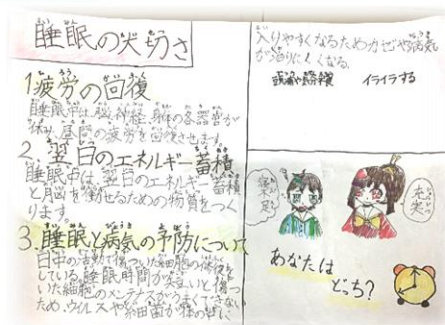 睡眠の大切さ
1.疲労の回復
睡眠中は、脳、神経、身体の各器官が
休み、昼間の疲労を回復させます。
2.翌日のエネルギー蓄積
睡眠中は、翌日のエネルギー蓄積
と脳を働かせるための物質をつく
ります。
3.睡眠と病気の予防について
日中の活動で傷ついた細胞の修復を
している。睡眠時間が短いと傷つ
いた細胞のメンテナンスがうまくできない
ため、ウイルスや細菌が体の中に
入りやすくなるためかぜや病気
が治りにくくなる。
イライラする
寝不足
充実
あなたは
どっち?